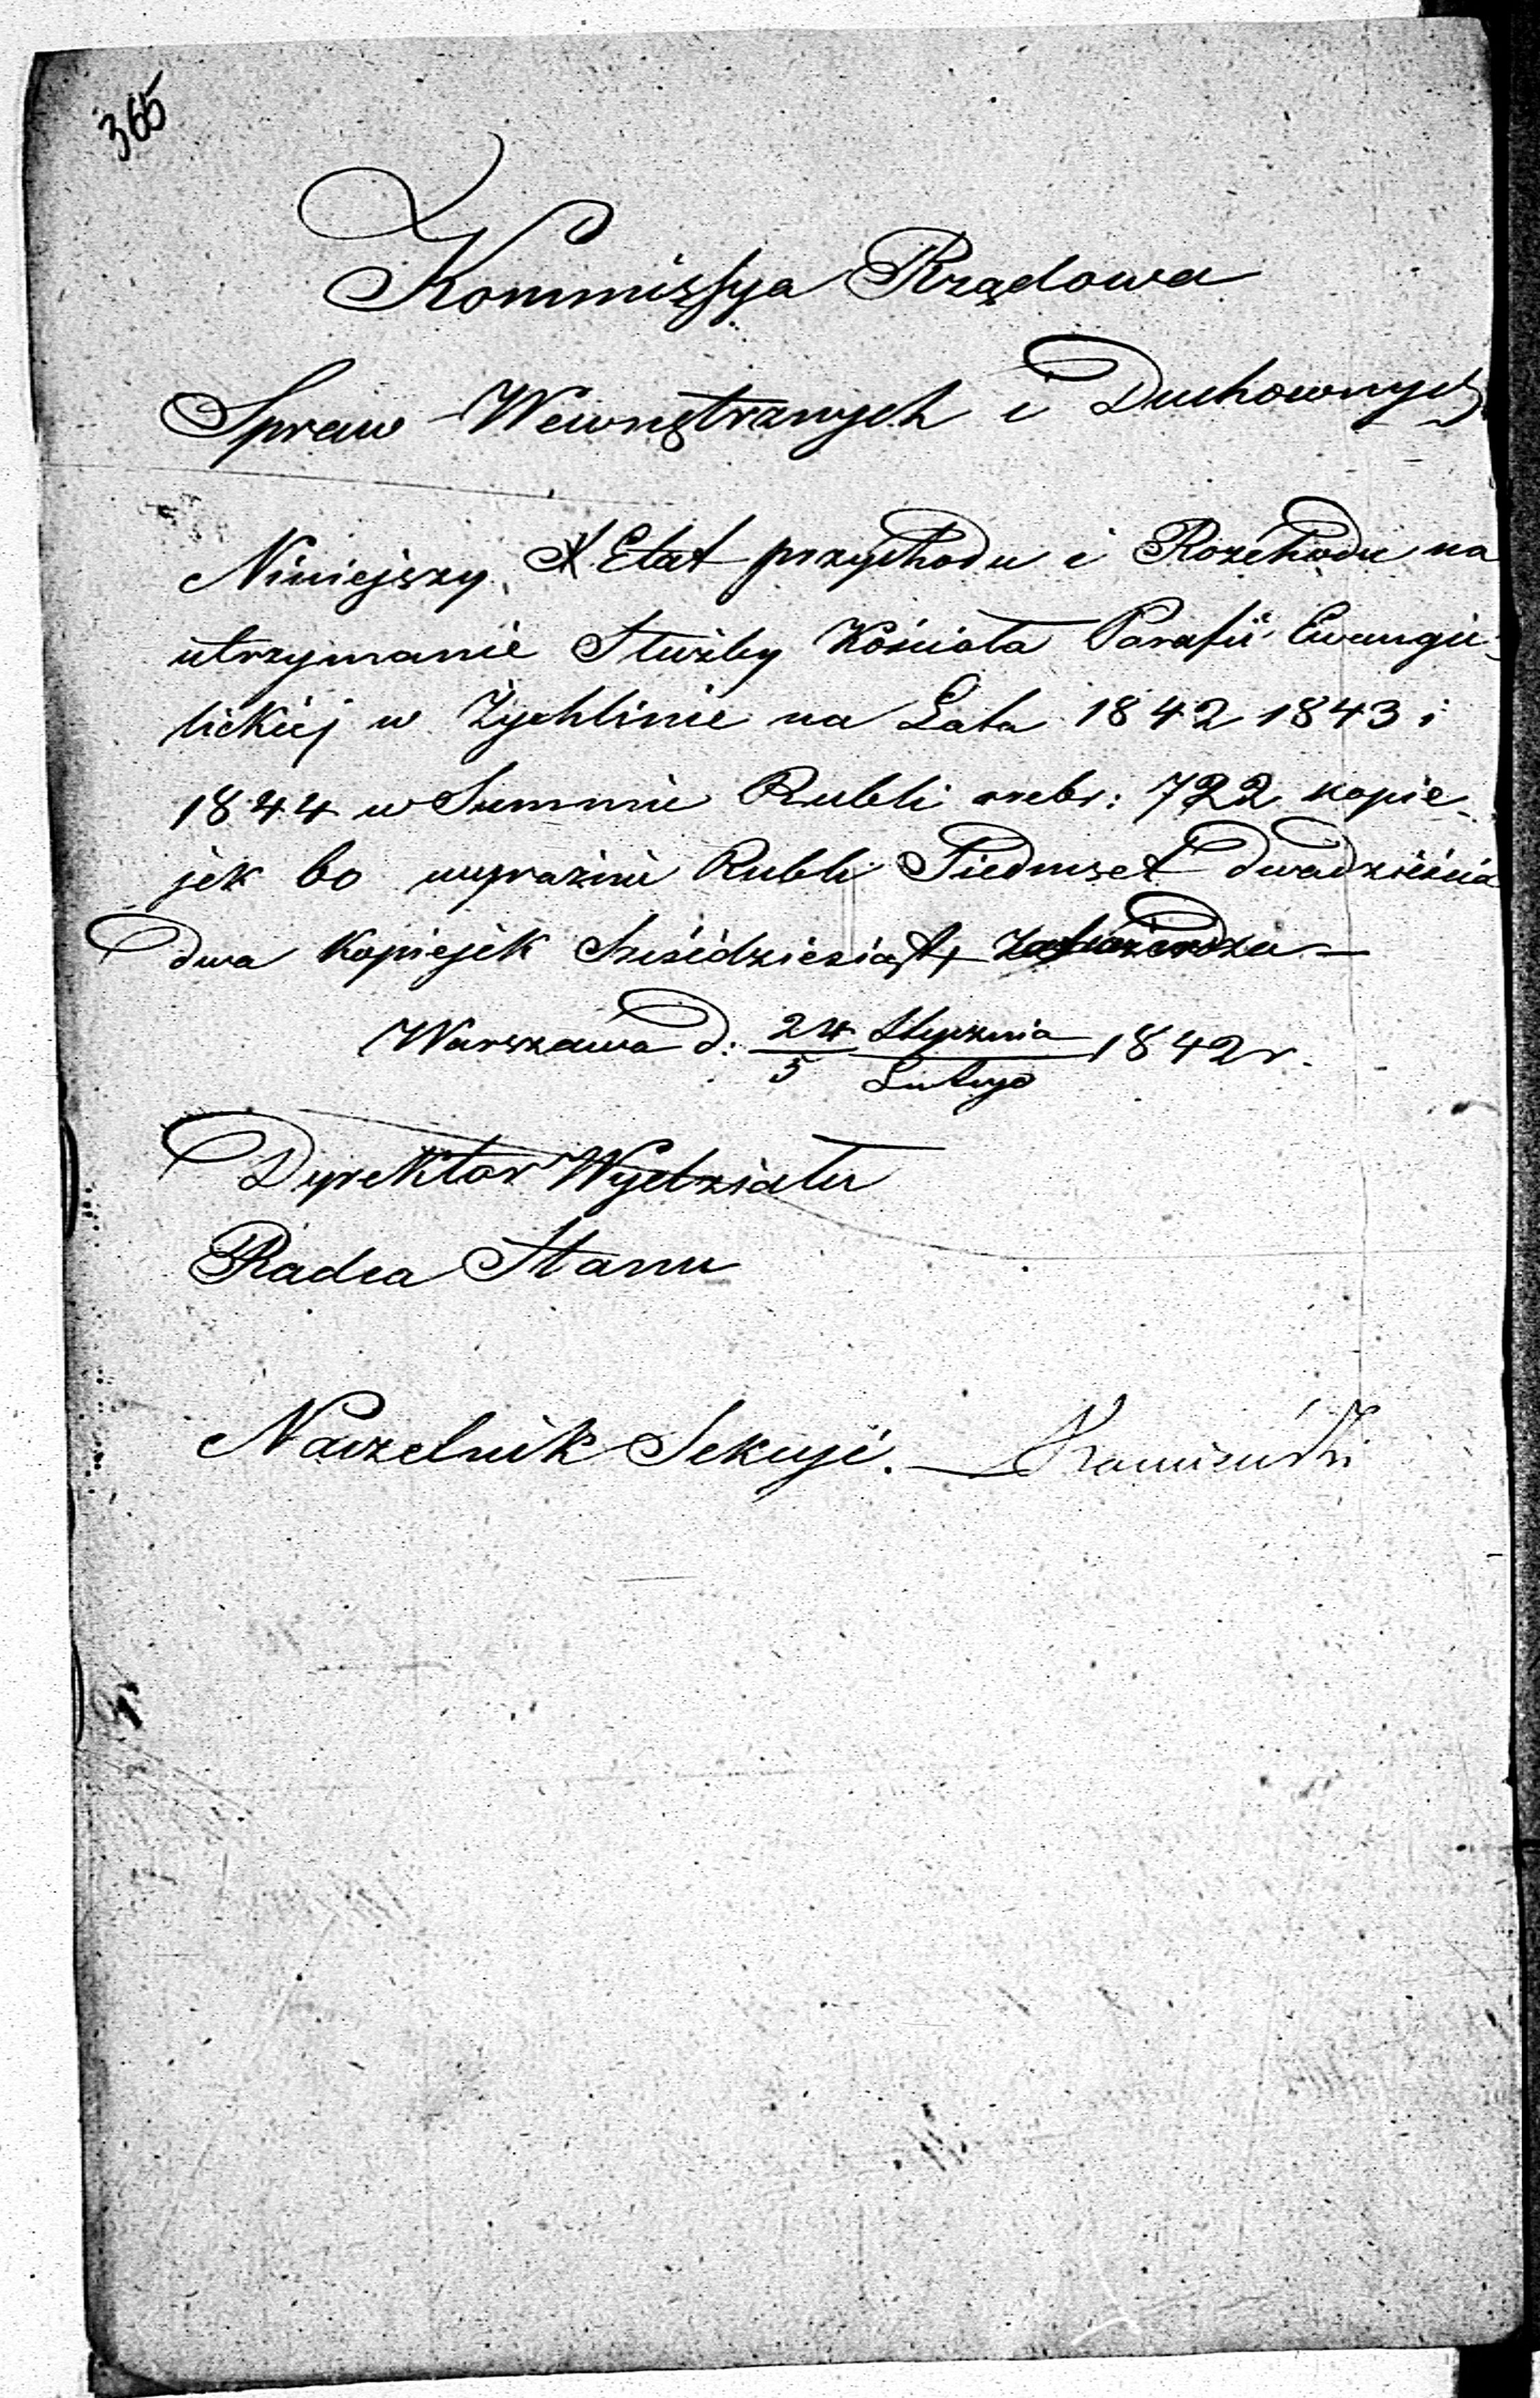 365
Kommissya Rządowa
Spraw Wewnętrznych i Duchownych
Niniejszy Etat przychodu i Rozchodu na
utrzymanie Służby Kościoła Parafii Ewangie-
lickiej w Żychlinie na Lata 1842 1843 i
1844 w Summie Rubli srebr: 722 kopie-
jek 60 wyraźnie Rubli Siedmset dwadzieścia
dwa Kopiejek Sześćdziesiąt zatwierdza —
Warszawa d: 24 Stycznia 1842 r.
5 Lutego
Dyrektor Wydziału
Radca Stanu
Naczelnik Sekcyi. Kamiński